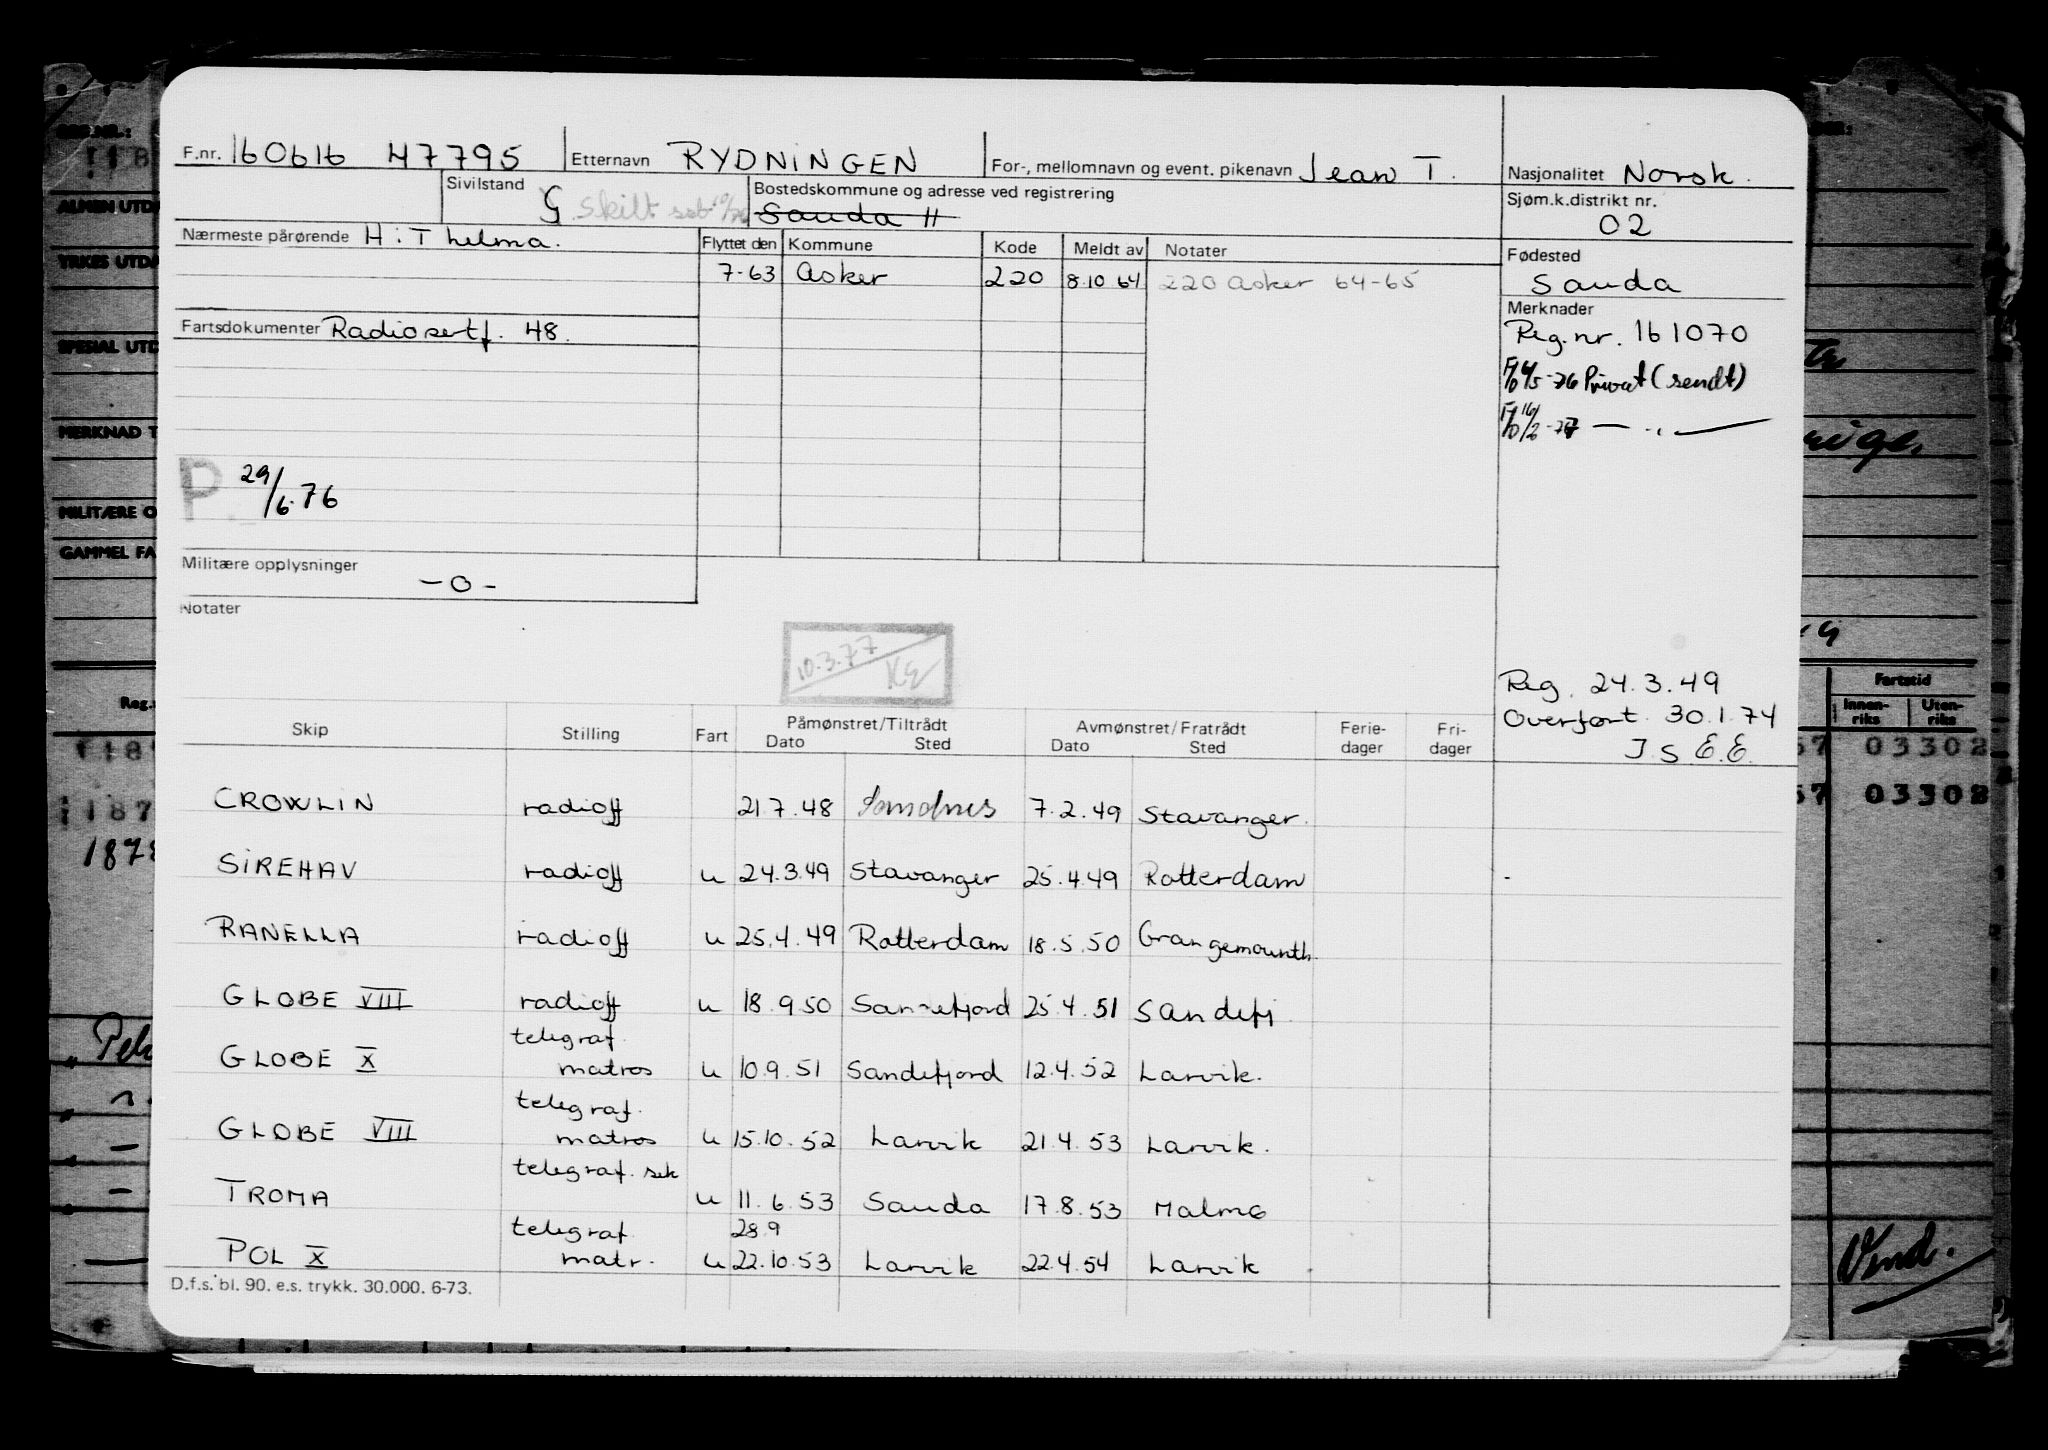 F.nr. 160616 47795 Etternavn RYDNINGEN For-, mellomnavn og event. pikenavn Jean T. Nasjonalitet Norsk.
Sivilstand G skilt Bostedskommune og adresse ved registrering Sauda 11 Sjøm.k.distrikt nr. 02
Nærmeste pårørende H: Thelma. Flyttet den Kommune Kode Meldt av Notater Fødested Sauda
7-63 Asker 220 8.10 64 220 Asker 64-65
Merknader
Fartsdokumenter Radiosertf. 48. Reg.nr. 161070
Privat (sendt)
P 29/6.76
Militære opplysninger -0-
Notater
10.3.77 KE
Reg. 24.3.49
Overført 30.1.74
J.S E.E.
Skip Stilling Fart Påmønstret/Tiltrådt Dato Sted Avmønstret/Fratrådt Dato Sted Ferie-dager Fri-dager
CROWLIN radioff 21.7.48 Sandnes 7.2.49 Stavanger.
SIREHAV radioff u 24.3.49 Stavanger 25.4.49 Rotterdam
RANELLA radioff u 25.4.49 Rotterdam 18.5.50 Grangemounth.
GLOBE VIII radioff u 18.9.50 25.4.51 Sandefj
GLOBE X telegraf. matros u 10.9.51 Sandefjord 12.4.52 Larvik.
GLOBE VIII telegraf. matros u 15.10.52 Larvik 21.4.53 Larvik.
TROMA telegraf. sek u 11.6.53 Sauda 17.8.53 Malmö
POL X telegraf. matr. u 28.9 22.10.53 Larvik 22.4.54 Larvik
D.f.s. bl. 90. e.s. trykk. 30.000. 6-73.
ALMEN UTDA
YRKES UTDA
SPESIAL UTD
MERKNAD T
MILITÆRE O
GAMMEL FA
Reg.
Fartstid
Innen-riks Uten-riks
03302
03302
Vend.